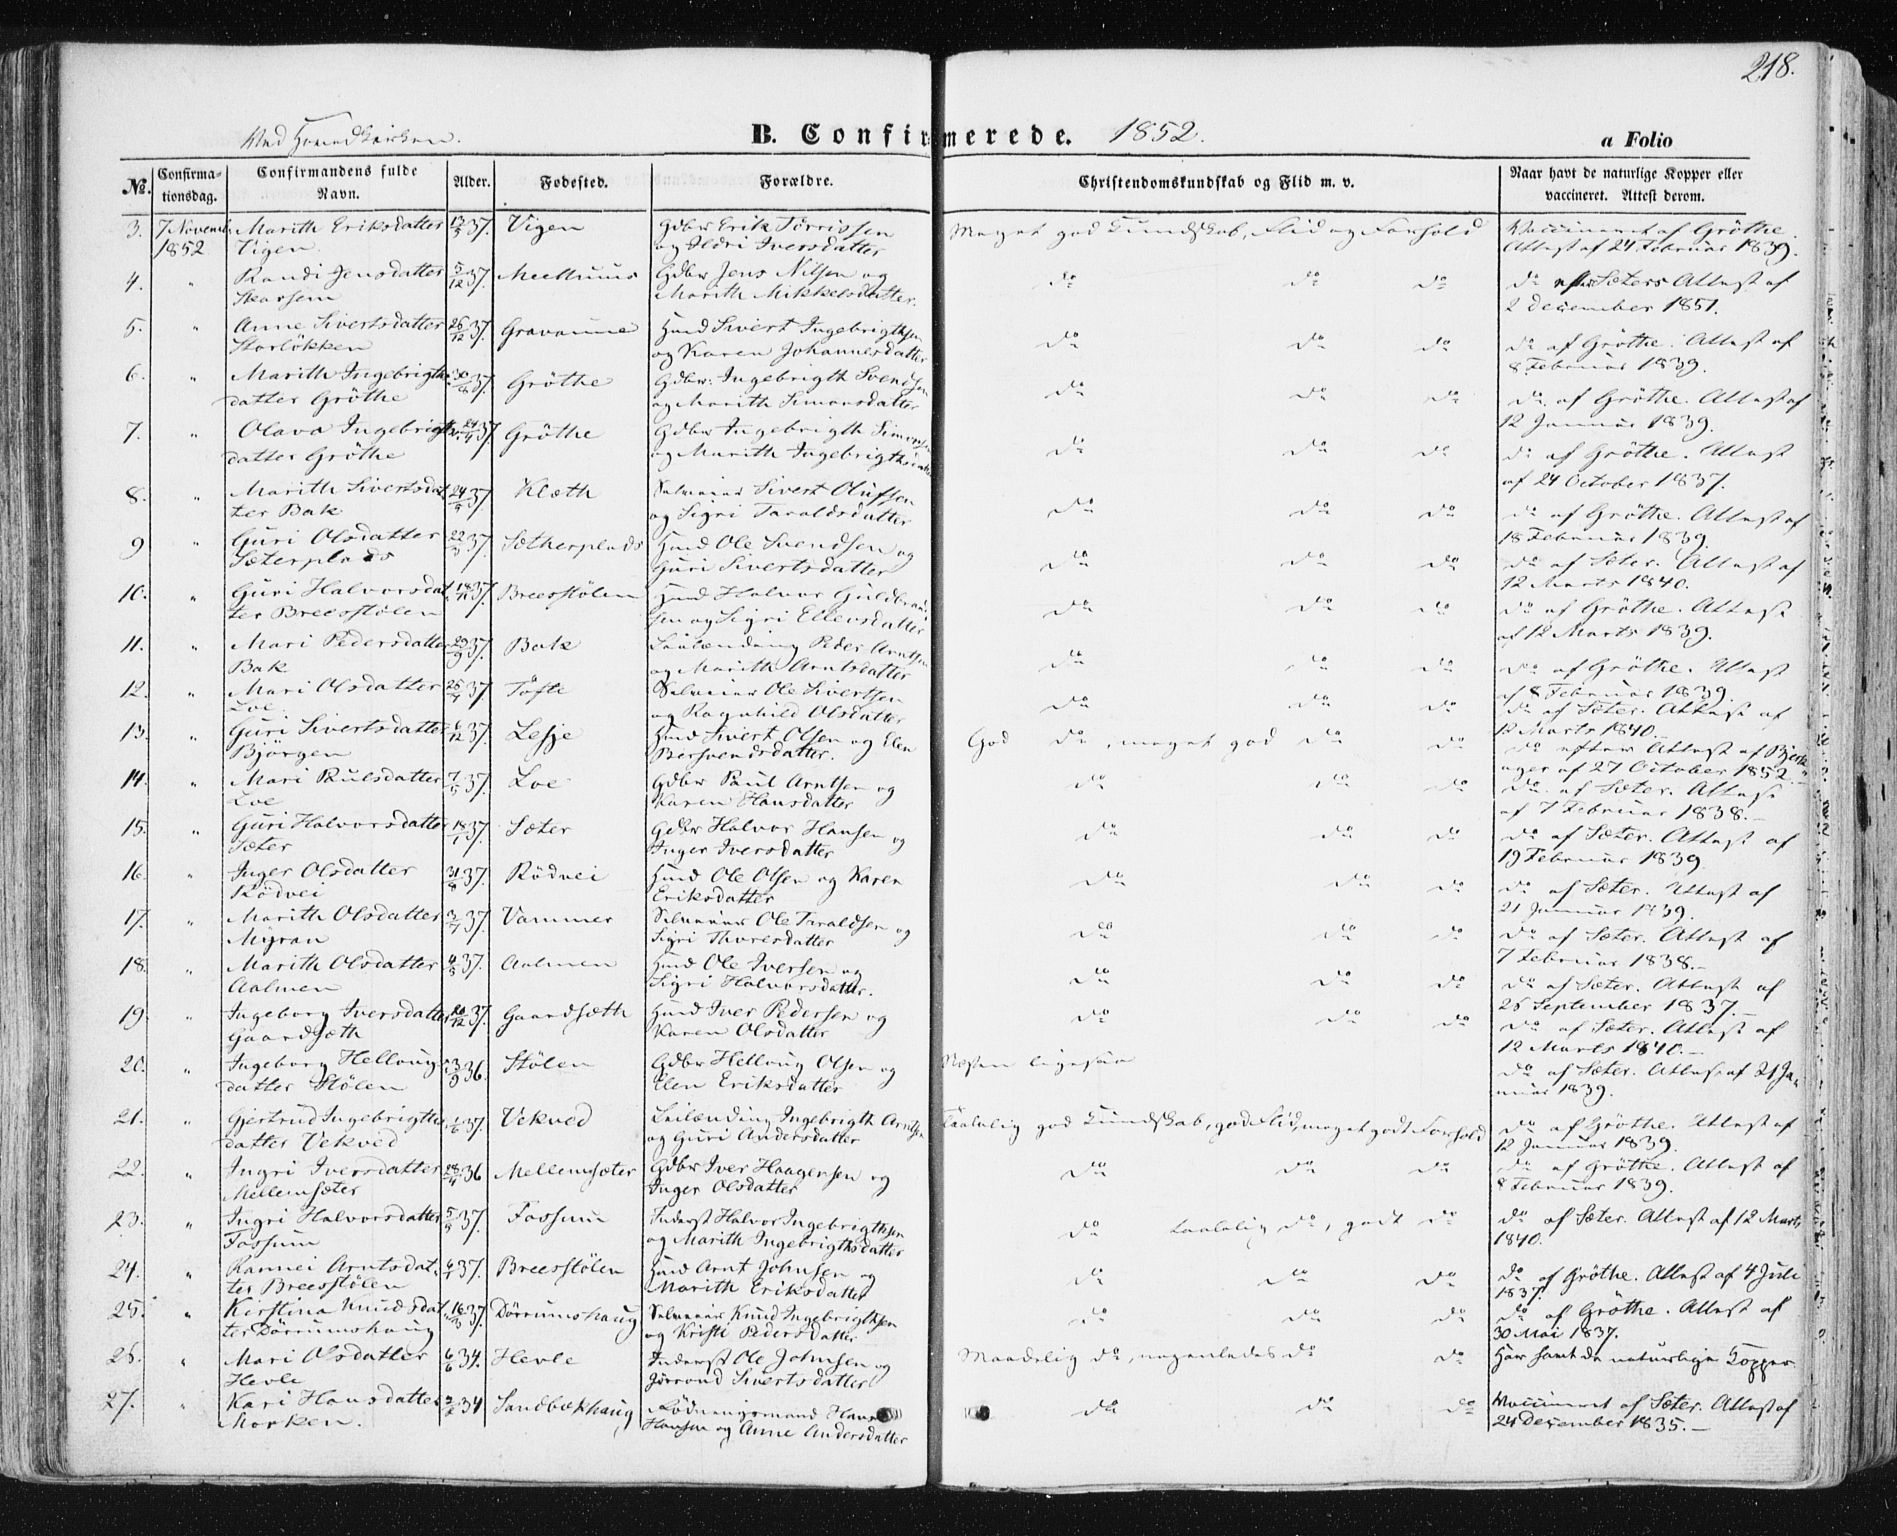 218.
Ved Hovedkirken.
B. Confirmerede. 1852.
a Folio
No. Confirmationsdag. Confirmandens fulde Navn. Alder. Fødested. Forældre. Christendomskundskab og Flid m. v. Naar havt de naturlige Kopper eller vaccineret. Attest derom.
3. 7 Novemb. Marith Eriksdatter 37. Vigen Gdbr Erik Törrissen Meget god Kundskab, Flid og Forhold Vaccineret af Gröthe.
1852 Vigen. og Ildri Iversdatter Attest af 24 Februar 1839.
4. " Randi Jensdatter 5/12 37. Gdbr Jens Nilsen og do do do do Sæters Attest af
Skarsem Marith Mikkelsdatter. 2 December 1851.
5. " Anne Sivertsdatter 26/12 37. Gravaune Huusmd Sivert Ingebrigthsen do do do do af Gröthe. Attest af
Storlökken og Karen Johannesdatter 8 Februar 1839.
6. " Marith Ingebrigth- 37. Gröthe Gdbr. Ingebrigth Svendsen do do do do af Gröthe. Attest af
datter Gröthe og Marith Simonsdatter 12 Januar 1839.
7. " Olava Ingebrigth- 37. Gröthe Gdbr Ingebrigth Simonsen do do do do af Gröthe. Attest
datter Gröthe og Marith Ingebrigthsdatter af 24 October 1837.
8. " Marith Sivertsdat- 37. Klæth Selveier Sivert Olufsen do do do do af Gröthe. Attest af
ter Bak og Sigri Taraldsdatter 18 Februar 1839.
9 " Guri Olsdatter 37. Sætherplads Huusmd Ole Svendsen og do do do do af Sæter. Attest af
Sæterplads Guri Sivertsdatter 12 Marts 1840.
10. " Guri Halvorsdat- 18/11 37. Breesstölen Huusmd Halvor Guldbrand- do do do do af Gröthe. Attest
ter Breesstölen sen og Sigri Ellevsdatter af 12 Marts 1839.
11. " Mari Pedersdatter 29/9 37. Bak Leilænding Peder Arntsen do do do do af Gröthe. Attest
Bak og Marith Arntsdatter af 8 Februar 1839.
12. " Mari Olsdatter 37. Töfte Selveier Ole Sivertsen do do do do af Sæter. Attest af
Loe. og Ragnhild Olsdatter 12 Marts 1840.
13. " Guri Sivertsdatter 6/12 37. Lesje Huusmd Sivert Olsen og Elen God do, meget god do do do efter Attest af Bjerk-
Björgen Bersvendsdatter. ager af 27 October 1852.
14. " Mari Paulsdatter 37. Loe Gdbr Paul Arntsen og do do do do af Sæter. Attest
Loe Karen Hansdatter af 7 Februar 1838.
15. " Guri Halvorsdatter 37. Sæter Gdbr Halvor Hansen og do do do do af Sæter. Attest af
Sæter Inger Iversdatter 19 Februar 1839.
16. " Inger Olsdatter 31/8 37. Rödvei Huusmd Ole Olsen og Karen do do do do af Sæter. Attest af
Rödvei Eriksdatter 21 Januar 1839.
17. " Marith Olsdatter 37. Vammer Selveier Ole Taraldsen og do do do do af Sæter. Attest af
Myran Sigri Thoresdatter 7 Februar 1838.
18. " Marith Olsdatter 37. Aalmen Huusmd Ole Iversen og do do do do af Sæter. Attest af
Aalmen Sigri Halvorsdatter. 26 September 1837.
19. " Ingeborg Iversdatter 37. Gaardsæth Huusmd Iver Pedersen og do do do do af Sæter. Attest af
Gaardsæth Karen Olsdatter 12 Marts 1840.
20. " Ingeborg Hellaug- 36. Stölen Gdbr Hellaug Olsen og Næsten ligesaa do af Sæter. Attest af 21 Ja-
datter Stölen Elen Eriksdatter nuar 1839.
21. " Gjertrud Ingebrigths- 37. Vekved Leilænding Ingebrigth Arntsen Taalelig god Kundskab, god Flid, meget godt Forhold do af Gröthe. Attest af
datter Vekved og Guri Andersdatter 12 Januar 1839.
22. " Ingri Iversdatter 36 Mellemsæter Gdbr Iver Haagensen og do do do do af Gröthe. Attest af
Mellemsæter Inger Olsdatter 8 Februar 1839.
23. " Ingri Halvorsdatter 37. Fossum Inderst Halvor Ingebrigthsen do taalelig do, godt do do af Sæter. Attest af 12 Marts
Fossum og Marith Ingebrigthsdatter 1840.
24. " Rannei Arntsdat- 37. Breesstölen Huusmd Arnt Johnsen og do do do do af Gröthe. Attest af 4 Juli
ter Breesstölen Marith Eriksdatter 1837.
25. " Kirstina Knudsdat- 37. Dörrumshaug Selveier Knud Ingebrigthsen do do do do af Gröthe. Attest af
ter Dörrumshaug og Kristi Pedersdatter 30 Mai 1837.
26. " Mari Olsdatter 34. Hevle Inderst Ole Johnsen og Maadelig do, nogenledes do do Har havt de naturlige Kopper
Hevle Jörrond Sivertsdatter
27. " Kari Hansdatter 34 Sandbækhaug Födningsmand Hans do do do Vaccineret af Sæter. Attest af
Morken. Hansen og Anne Andersdatter 24 December 1835.